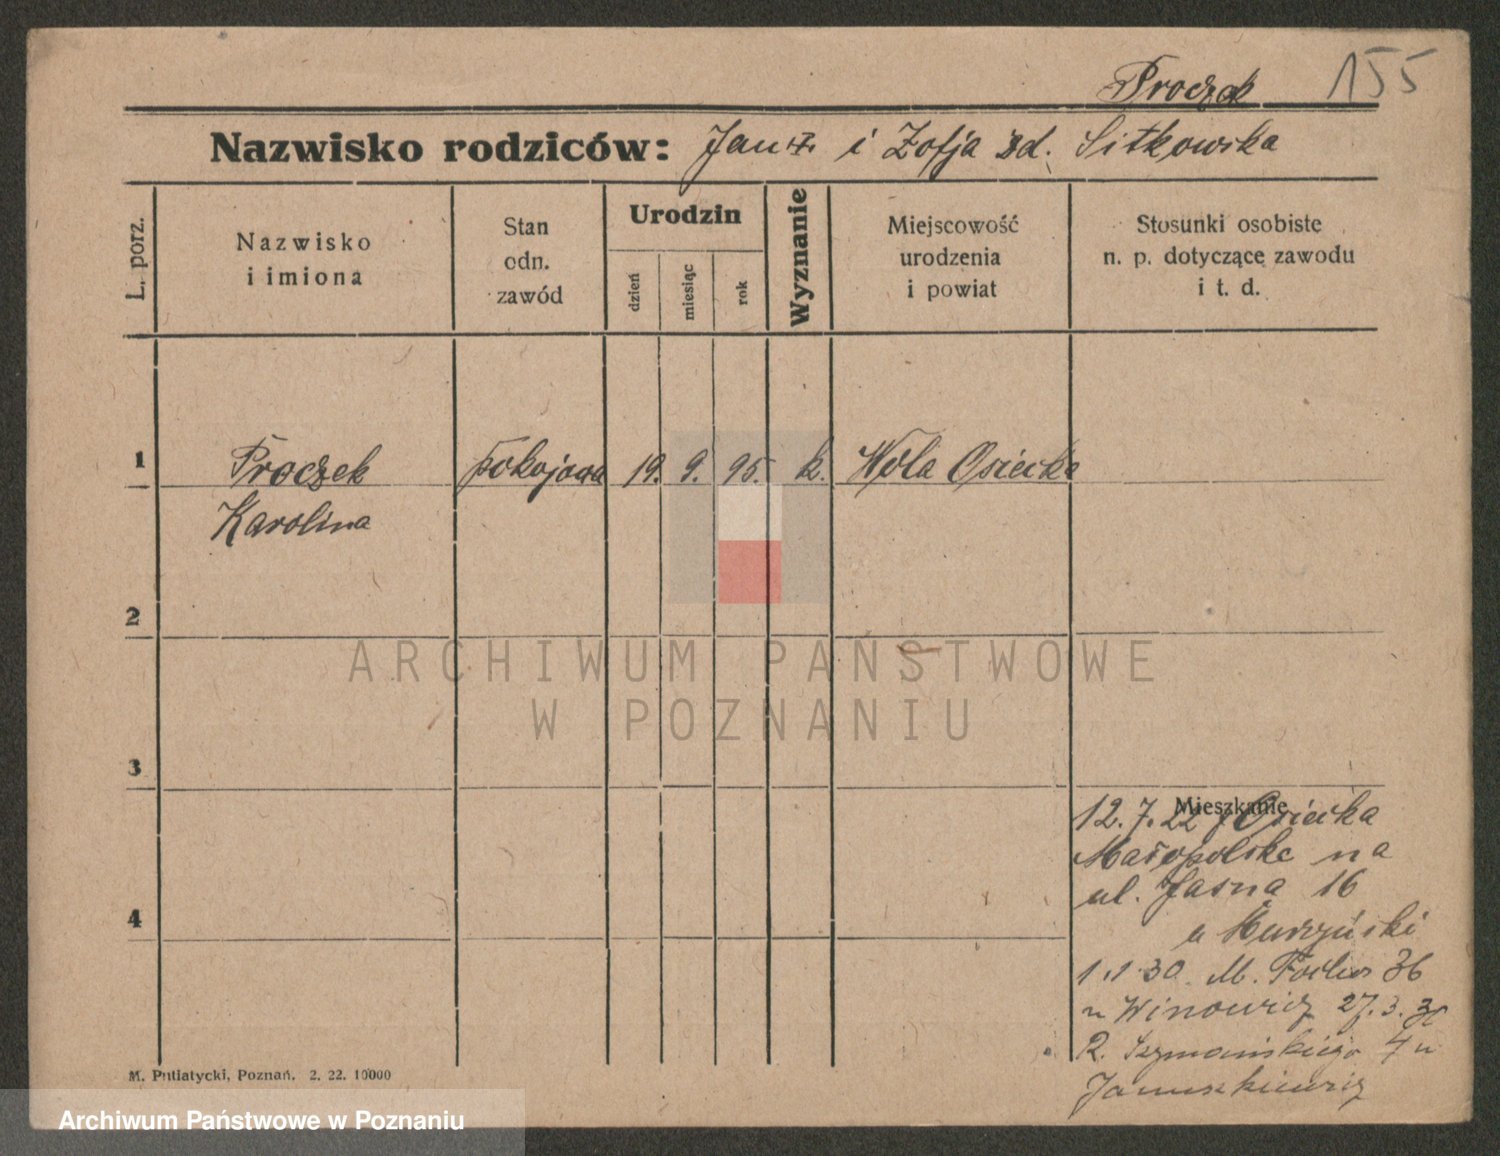 Proczek 155
Nazwisko rodziców: Jan i Zofja zd. Sitkowska
L. porz.
Nazwisko
i imiona
Stan
odn.
zawód
Urodzin
dzień
miesiąc
rok
Wyznanie
Miejscowość
urodzenia
i powiat
Stosunki osobiste
n. p. dotyczące zawodu
i t. d.
1 Proczek pokojowa 19. 9. 95. k. Wola Osiecka
Karolina
2
ARCHIWUM PAŃSTWOWE
W POZNANIU
3
Mieszkanie
12.7.22 Osiecka
Małopolska na
ul. Jasna 16
4
u Murzyński
1.1.30 M. Focha 36
u Winowicz 27.3.30
R. Szymańskiego 4 u
Januszkiewicz
M. Putiatycki, Poznań. 2. 22. 10000
Archiwum Państwowe w Poznaniu